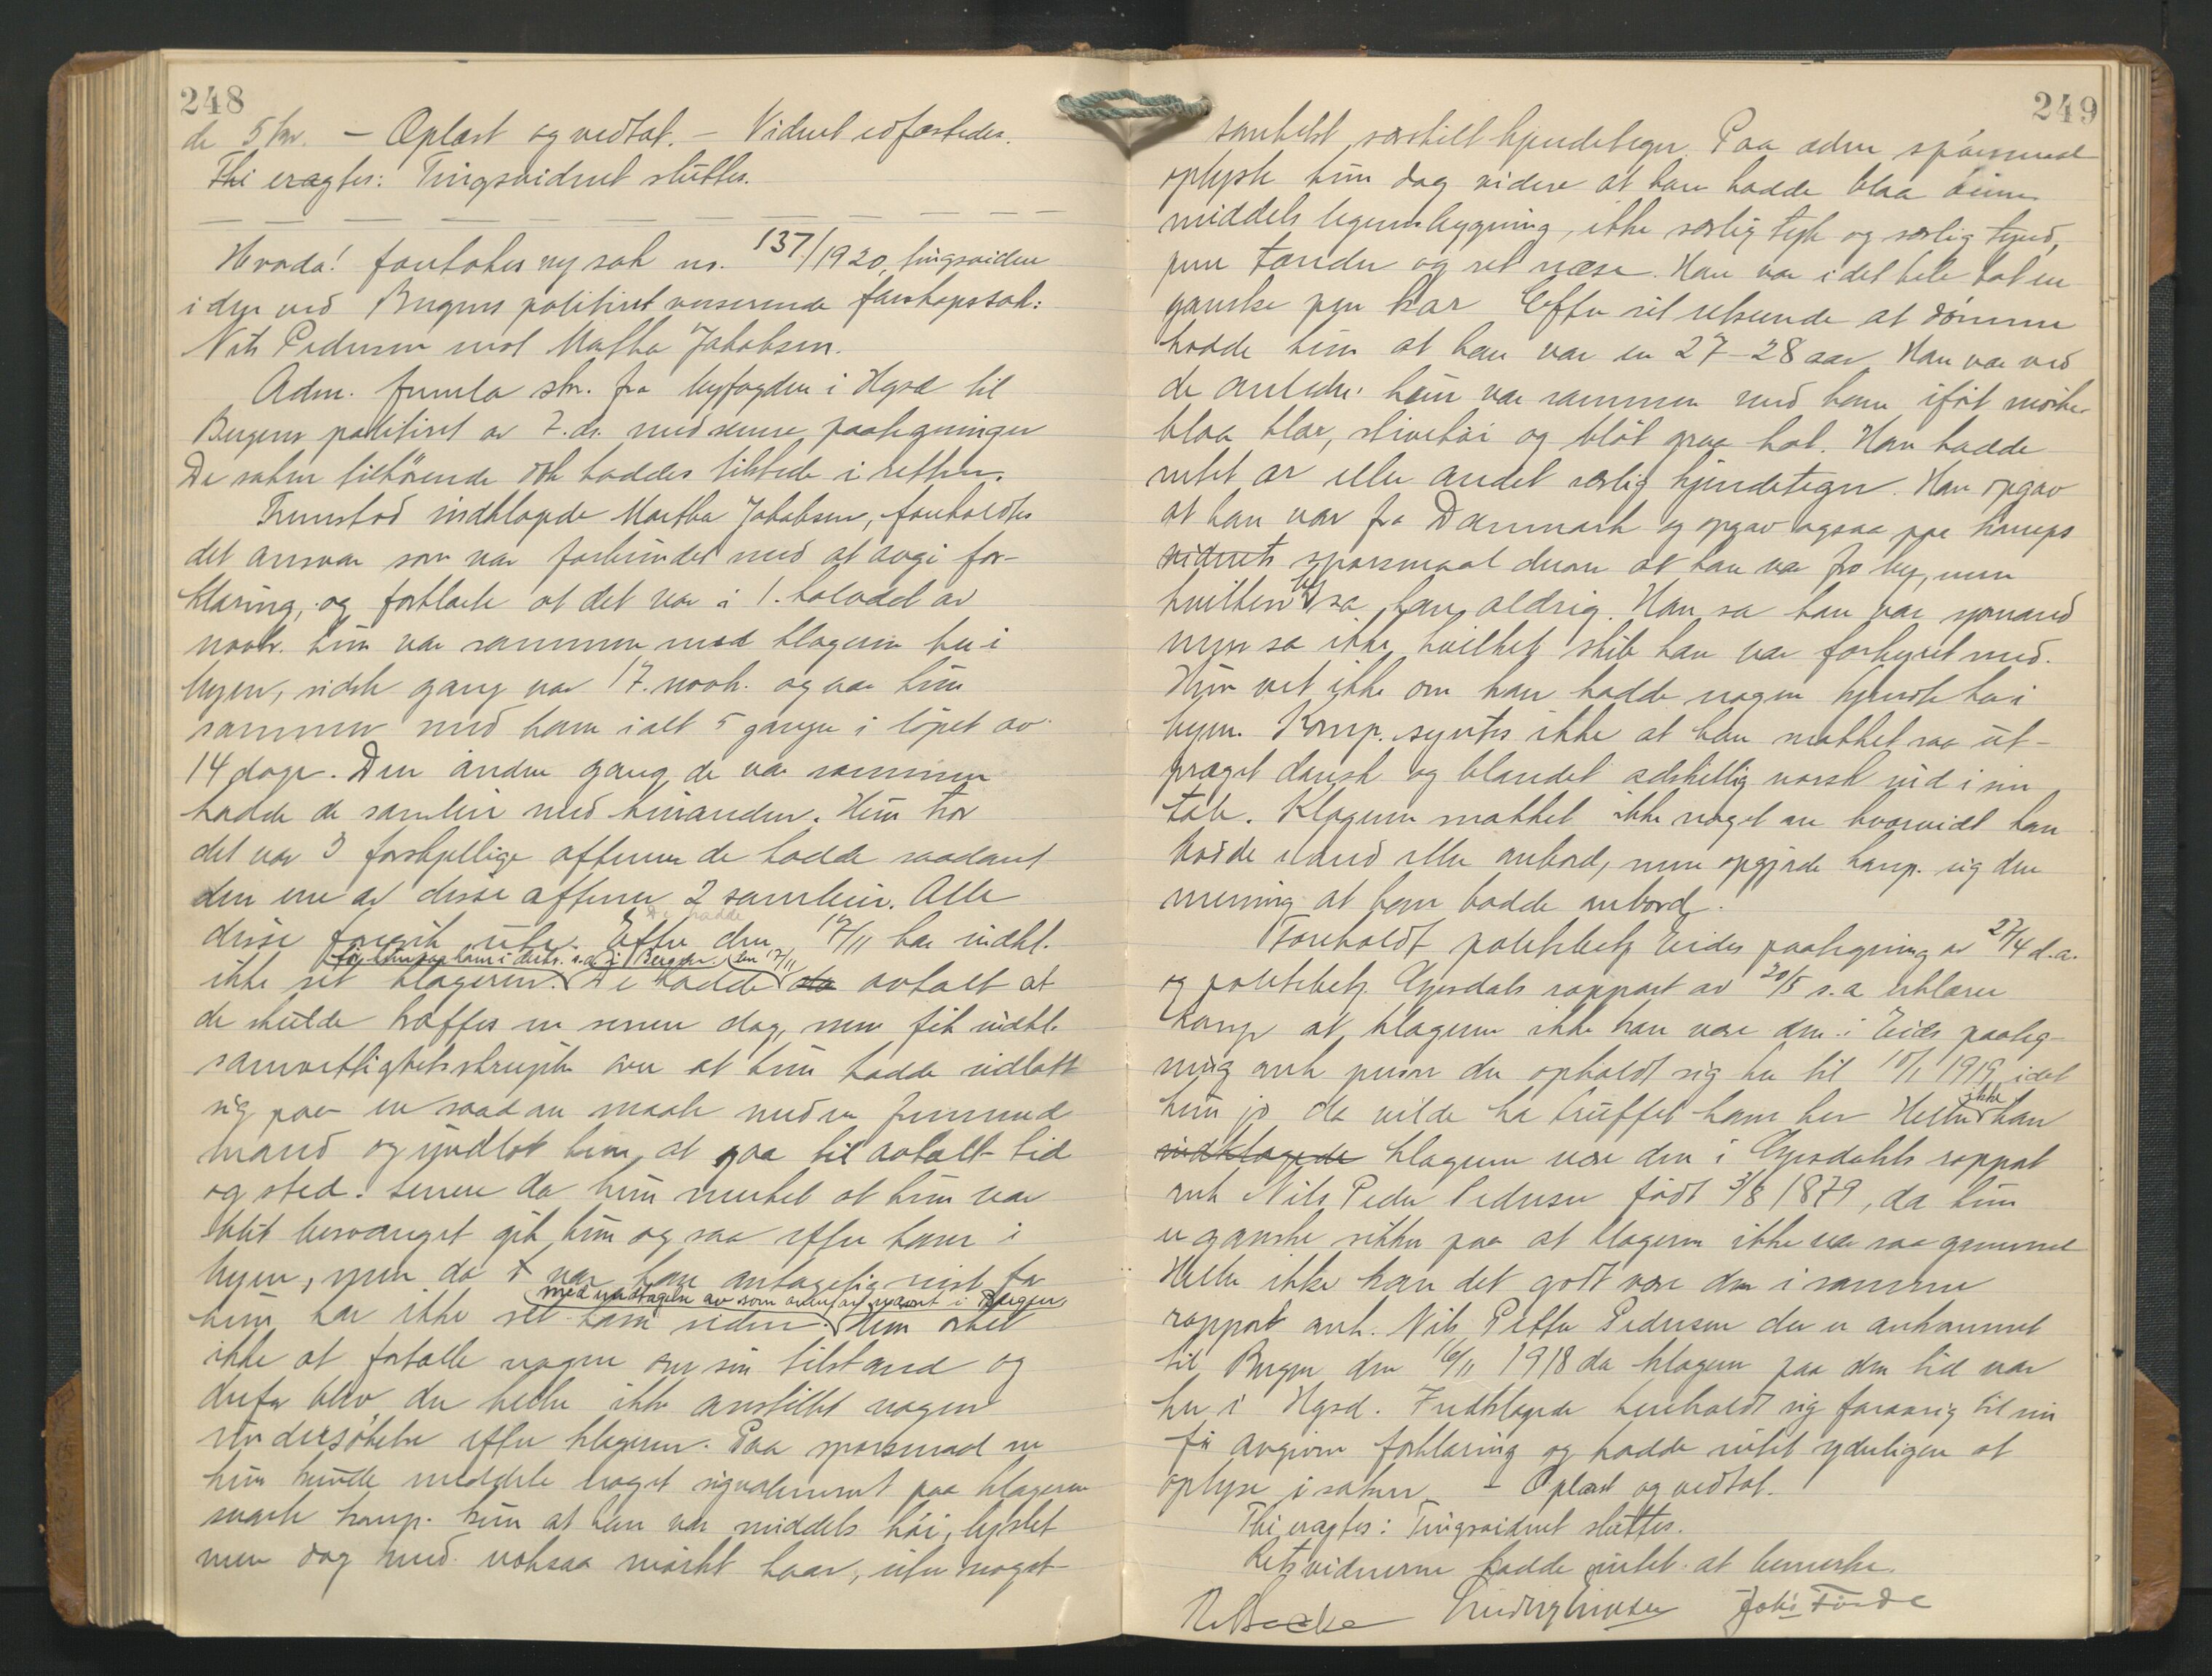 248
de 5 kr. – Oplæst og vedtat. – Vidnet edfæstedes.
Thi eragtes: Tingsvidnet sluttes.
Hvorda! foretokes ny sak nr. 137/1920, tingsvidne
i den ved Bergens politiret verserende farskapssak:
Nils Pedersen mot Martha Jakobsen.
Adm. fremla skr. fra byfogden i Hgsd til
Bergens politiret av 7. ds. med senere paategninger
De saken tilhörende dok haddes tilstede i retten.
Fremstod indklagede Martha Jakobsen, foreholdtes
det ansvar som var forbundet med at avgi for-
klaring, og forklarte at det var i 1. halvdel av
novbr. hun var sammen med klageren her i
byen, sidste gang var 17. novb. og var hun
sammen med ham ialt 5 ganger i löpet av
14 dage. Den anden gang de var sammen
hadde de samleie med hinanden. Hun tror
det var 3 forskjellige aftener de hadde saadant
den ene av disse aftener 2 samleier. Alle
disse foregik ute. Efter den 17/11 har indkl.
ikke set klageren. De hadde den 17/11 avtalt at
de skulde træffes en senere dag, men fik indkl.
samvittighetsskrupler over at hun hadde indlatt
sig paa en saadan maate med en fremmed
mand og undlot hun at gaa til avtalt tid
og sted. Senere da hun merket at hun var
blit besvangret gik hun og saa efter ham i
byen, men da var han antagelig reist for
med undtagelse av som ovenfor nævnt i Bergen
hun har ikke set ham siden. Hun orket
ikke at fortælle nogen om sin tilstand og
derfor blev der heller ikke anstillet nogen
undersökelse efter klageren. Paa sporsmaal om
hun kunde meddele noget signalement paa klageren
svarte komp. hun at han var middels höi, lyslet
men dog med noksaa mörkt haar, uten noget
249
somhelst særskilt kjendetegn. Paa adm spörsmaal
oplyste hun dog videre at han hadde blaa öine
middels legemsbygning, ikke særlig tyk og særlig tynd,
pene tænder og ret næse. Han var i det hele tat en
ganske pen kar. Efter sit utseende at dömme
trodde hun at han var en 27–28 aar. Han var ved
de anledn. hun var sammen med ham iført mörke-
blaa klær, stivetöi og blöt graa hat. Han hadde
intet ar eller andet særlig kjendetegn. Han opgav
at han var fra Danmark og opgav ogsaa paa komps
vidnets sporsmaal derom at han var fra by, men
hvilken by sa han aldrig. Han sa han var sjömand
men sa ikke hvilket skib han var forhyret med.
Hun vet ikke om han hadde nogen kjendte her i
byen. Komp. syntes ikke at han snakket saa ut-
præget dansk og blandet adskillig norsk ind i sin
tale. Klageren snakket ikke noget om hvorvidt han
bodde iland eller ombord, men opgjorde komp. sig den
mening at ham bodde ombord.
Foreholdt politibetj Eides paategning av 27/4 d.a.
og politibetj. Gjesdals rapport av 20/5 s.a erklærer
komp at klageren ikke kan være den i Eides paateg-
ning anh person der opholdt sig her til 10/1 1919, idet
hun jo da vilde ha truffet ham her. Heller ikke kan
indklagede klageren være den i Gjesdahls rapport
anh Nils Peder Pedersen född 3/8 1879, da hun
er ganske sikker paa at klageren ikke var saa gammel
Heller ikke kan det godt være den i samme
rapport anh. Nils Petter Pedersen der er ankommet
til Bergen den 16/11 1918 da klageren paa den tid var
her i Hgsd. Indklagede henholdt sig forövrig til sin
för avgivne forklaring og hadde intet yderligere at
oplyse i saken. – Oplæst og vedtat.
Thi eragtes: Tingsvidnet sluttes.
Retsvidnerne hadde intet at bemerke.